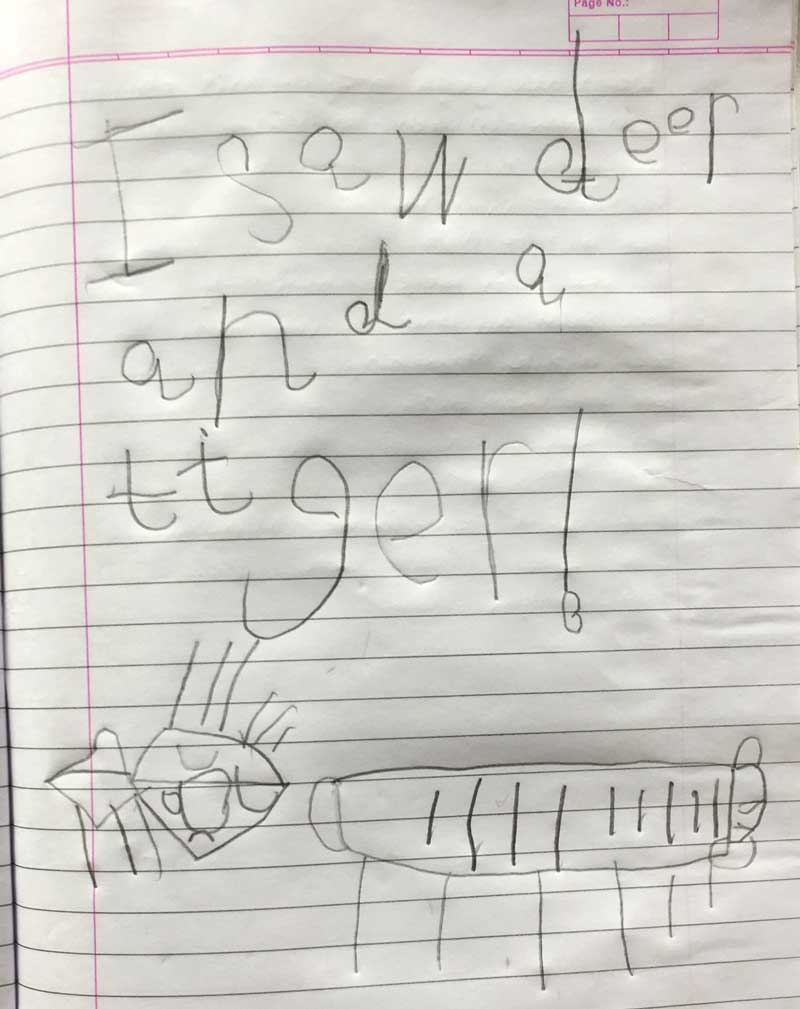 Page No.:
I saw deer
and a
tiger!